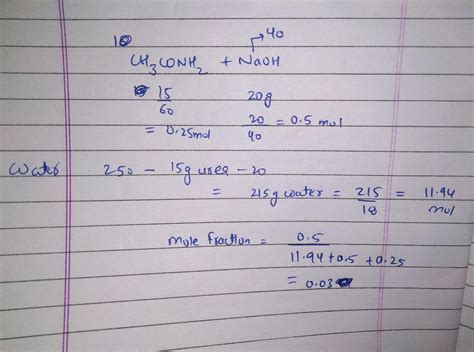 18 → 40
CH3CONH2 + NaOH
15/60 20g
= 0.25mol 20/40 = 0.5 mol
Water 250 - 15g urea - 20
= 215g water = 215/18 = 11.94 mol
mole fraction = 0.5/11.94 + 0.5 + 0.25
= 0.03